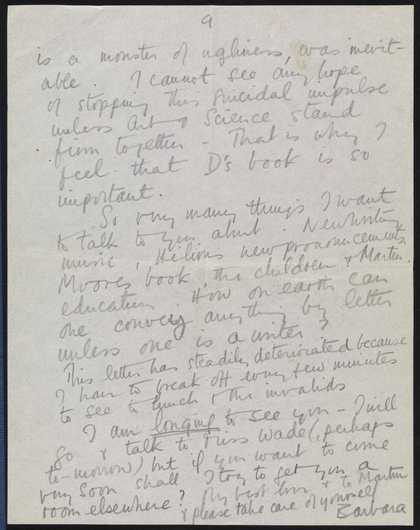 9
is a monster of ugliness, was inevit-
able. I cannot see any hope
of stopping this suicidal impulse
unless Art & Science stand
firm together - That is why I
feel that D's book is so
important.
So very many things I want
to talk to you about. New writing
music, Helions new pronouncements
Moores book, the children & Martin
education. How on earth can
one convey anything by letter
unless one is a writer?
This letter has steadily deteriorated because
I have to break off every few minutes
to see to lunch & the invalids
I am longing to see you - I will
go & talk to Miss Wade (perhaps
to-morrow) but if you want to come
very soon shall I try to get you a
room elsewhere? My best love & to Martin
& please take care of yourself
Barbara